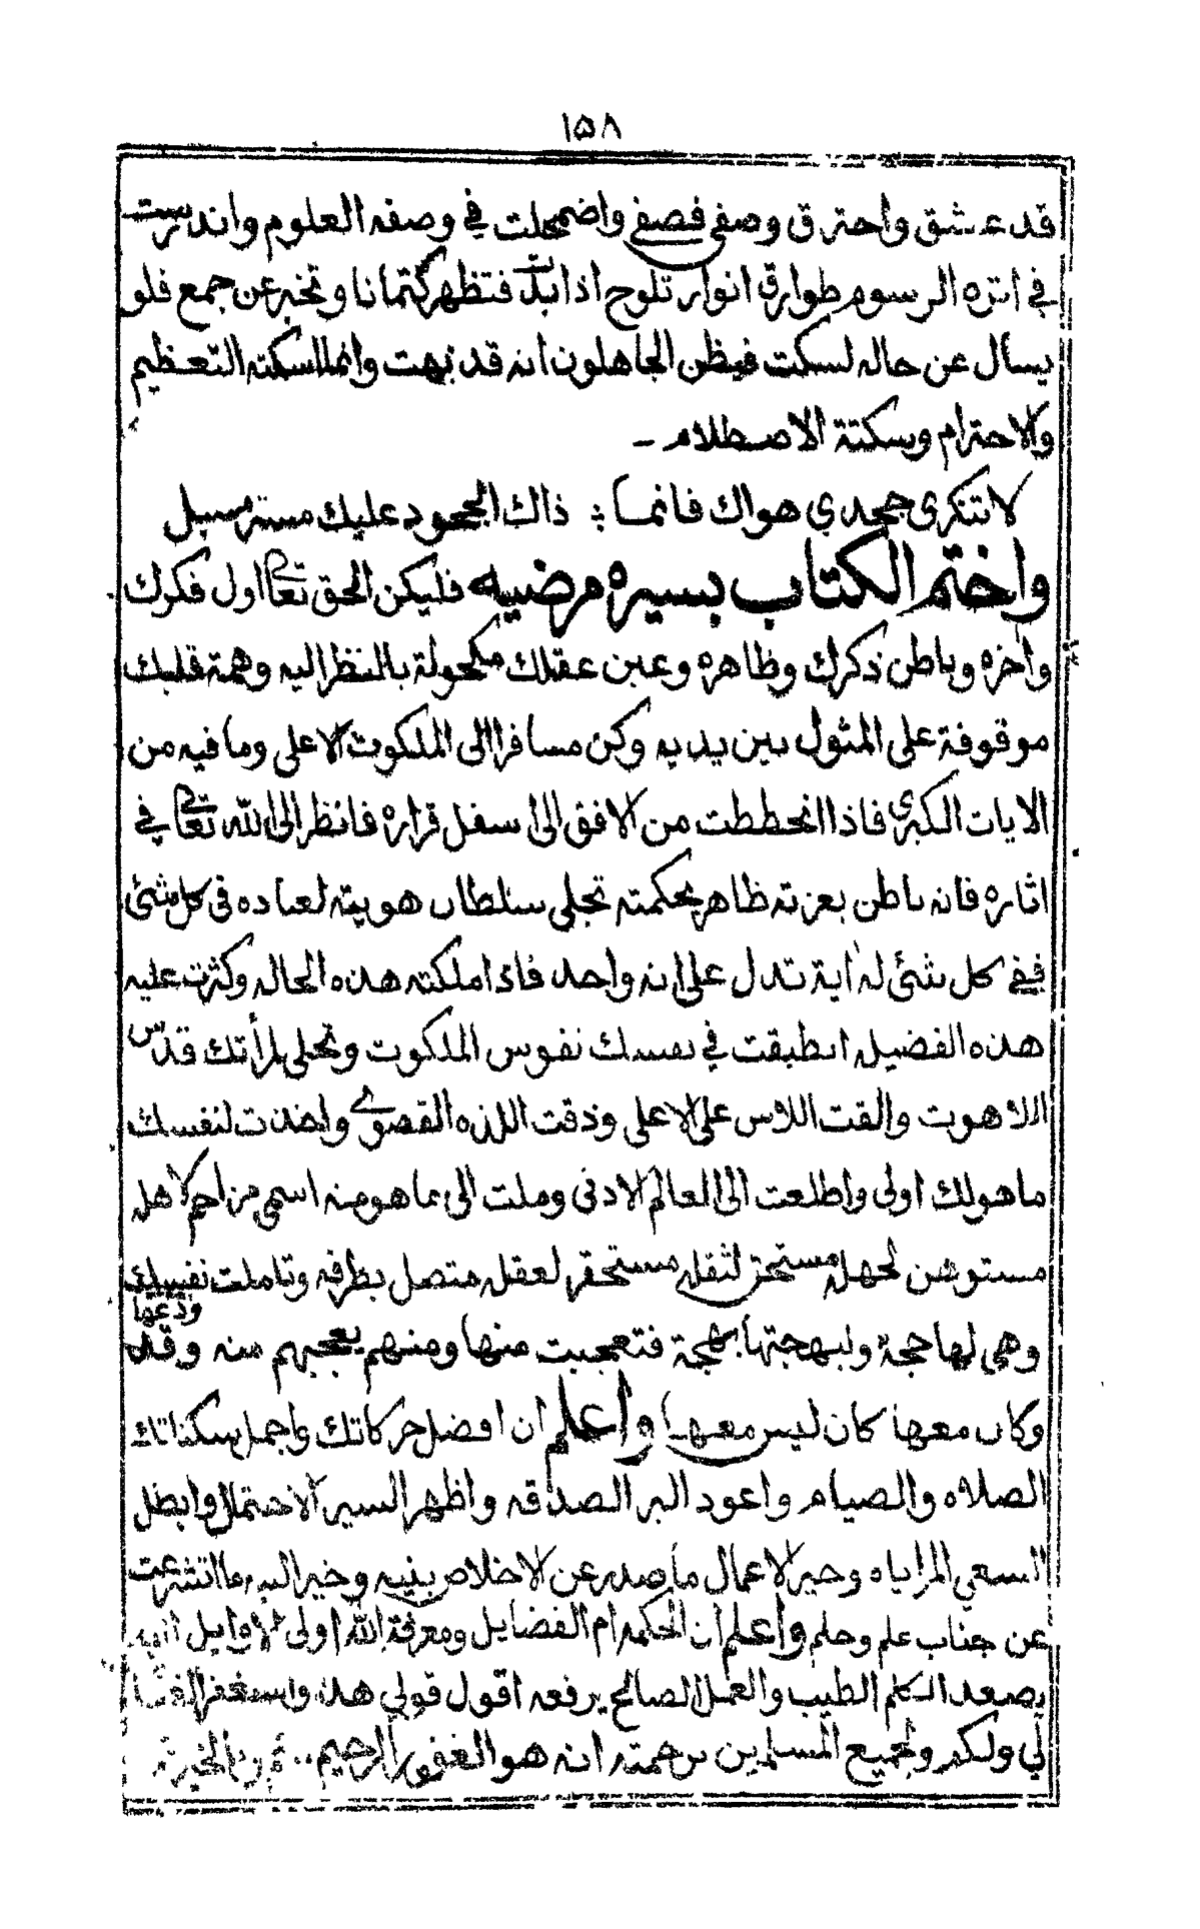 ١٥٨
قد عشق واحترق وصفى فصفى واضمحلت في وصفه العلوم واندرست
في اثره الرسوم طوارق انوار تلوح اذا بدت فتظهر كتمانا وتخبر عن جمع فلو
يسأل عن حاله لسكت فيظن الجاهلون انه قد بهت وانما اسكته التعظيم
والاحترام وسكتة الاصطلام -
لا تنكري جحدي هواك فانما : ذاك الجحود عليك ستر مسبل
واختم الكتاب بسيره مرضيه فليكن الحق تعالى اول فكرك
واخره وباطن ذكرك وظاهره وعين عقلك مكحولة بالنظر اليه وهمة قلبك
موقوفة على المثول بين يديه وكن مسافرا الى الملكوت الاعلى وما فيه من
الايات الكبرى فاذا انحططت من الافق الى اسفل قراره فانظر الى الله تعالى في
اثاره فانه باطن بعزته ظاهر بحكمته تجلى سلطان هويته لعباده فى كل شئى
ففي كل شئى له اية تدل على انه واحد فاذا ملكته هذه الحاله وكثرت عليه
هذه الفضيله انطبقت في نفسك نفوس الملكوت وتجلى لمرأتك قدس
اللاهوت والقت اللاس على الاعلى وذقت اللذه القصوى واخذت لنفسك
ما هو لك اولى واطلعت الى العالم الادنى وملت الى ما هو منه اسمى من احم لاهله
مستوهن لجهله مستحق لثقله مستحقر لعقله متصل بطرفه وتاملت نفسك
وهي لها حجة ولبهجتها بهجة فتعجبت منها ومنهم يعجبهم منه وقد ودعها
وكان معها كان ليس معها واعلم ان افضل حركاتك واجمل سكناتك
الصلاه والصيام واعود البر الصدقه واظهر السير الاحتمال وابطل
السعي المراياه وخير الاعمال ما صدر عن الاخلاص بنيه وخير النيه ما اتشرعت
عن جناب علم وحلم واعلم ان الحكمه ام الفضايل ومعرفة الله اولى الاوايل اليه
يصعد الكلم الطيب والعمل الصالح يرفعه اقول قولي هذا واستغفر الله
لي ولكم ولجميع المسلمين برحمته انه هو الغفور الرحيم